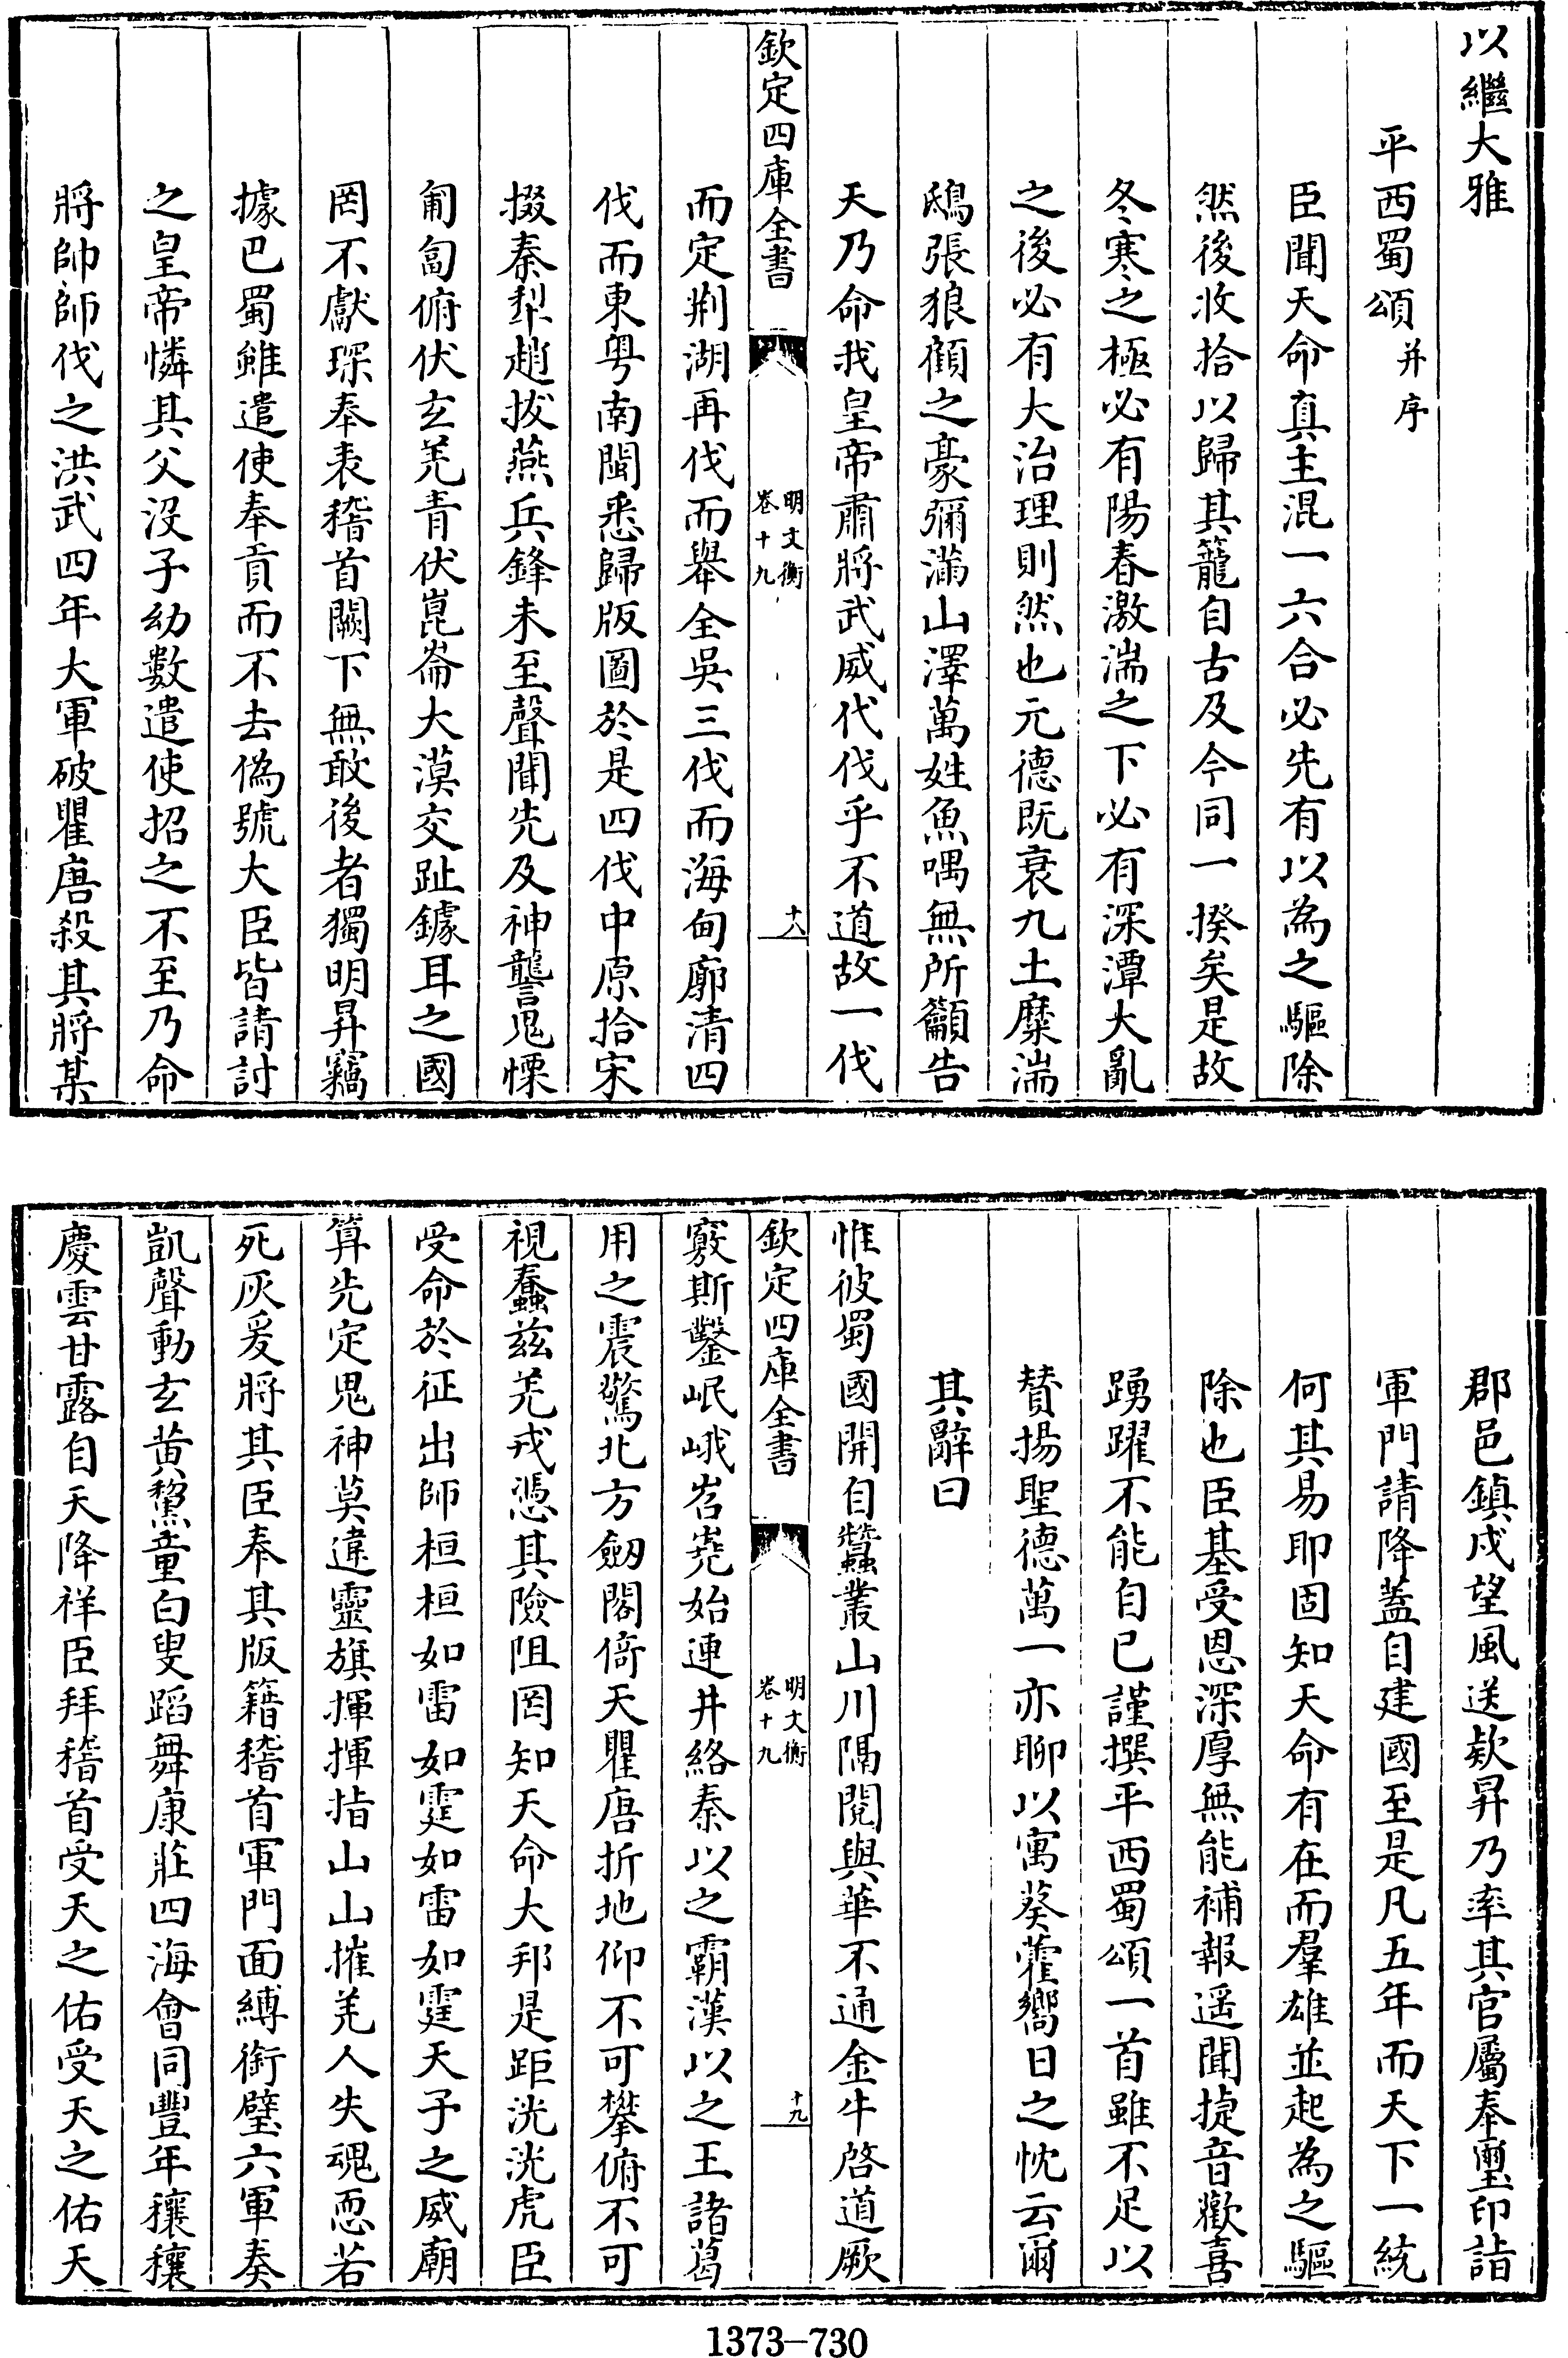 以繼大雅
平西蜀頌并序
臣聞天命真主混一六合必先有以為之驅除
然後收拾以歸其籠自古及今同一揆矣是故
冬寒之極必有陽春激湍之下必有深潭大亂
之後必有大治理則然也元德既衰九土糜湍
鴟張狼顧之豪彌滿山澤萬姓魚喁無所籲告
天乃命我皇帝肅將武威代伐乎不道故一伐
欽定四庫全書
明文衡
卷十九
十八
而定荆湖再伐而舉全吳三伐而海甸廓清四
伐而東粤南閩悉歸版圖於是四伐中原拾宋
掇秦犁趙拔燕兵鋒未至聲聞先及神讋鬼慄
匍匐俯伏玄羌青伏崑崙大漠交趾鐻耳之國
罔不獻琛奉表稽首闕下無敢後者獨明昇竊
據巴蜀雖遣使奉貢而不去偽號大臣皆請討
之皇帝憐其父沒子幼數遣使招之不至乃命
將帥師伐之洪武四年大軍破瞿唐殺其將某
郡邑鎮戍望風送欵昇乃率其官屬奉璽印詣
軍門請降蓋自建國至是凡五年而天下一統
何其易耶固知天命有在而羣雄並起為之驅
除也臣基受恩深厚無能補報遥聞捷音歡喜
踴躍不能自已謹撰平西蜀頌一首雖不足以
賛揚聖德萬一亦聊以寓葵藿嚮日之忱云爾
其辭曰
惟彼蜀國開自蠶叢山川隔閡與華不通金牛啓道厥
欽定四庫全書
明文衡
卷十九
十九
竅斯鑿岷峨岧嶤始連井絡秦以之霸漢以之王諸葛
用之震驚北方劒閣倚天瞿唐折地仰不可攀俯不可
視蠢兹羌戎憑其險阻罔知天命大邦是距洸洸虎臣
受命於征出師桓桓如雷如霆如雷如霆天子之威廟
算先定鬼神莫違靈旗揮揮指山山摧羌人失魂恧若
死灰爰將其臣奉其版籍稽首軍門面縛銜璧六軍奏
凱聲動玄黄黧童白叟蹈舞康莊四海會同豐年穰穰
慶雲甘露自天降祥臣拜稽首受天之佑受天之佑天
1373-730